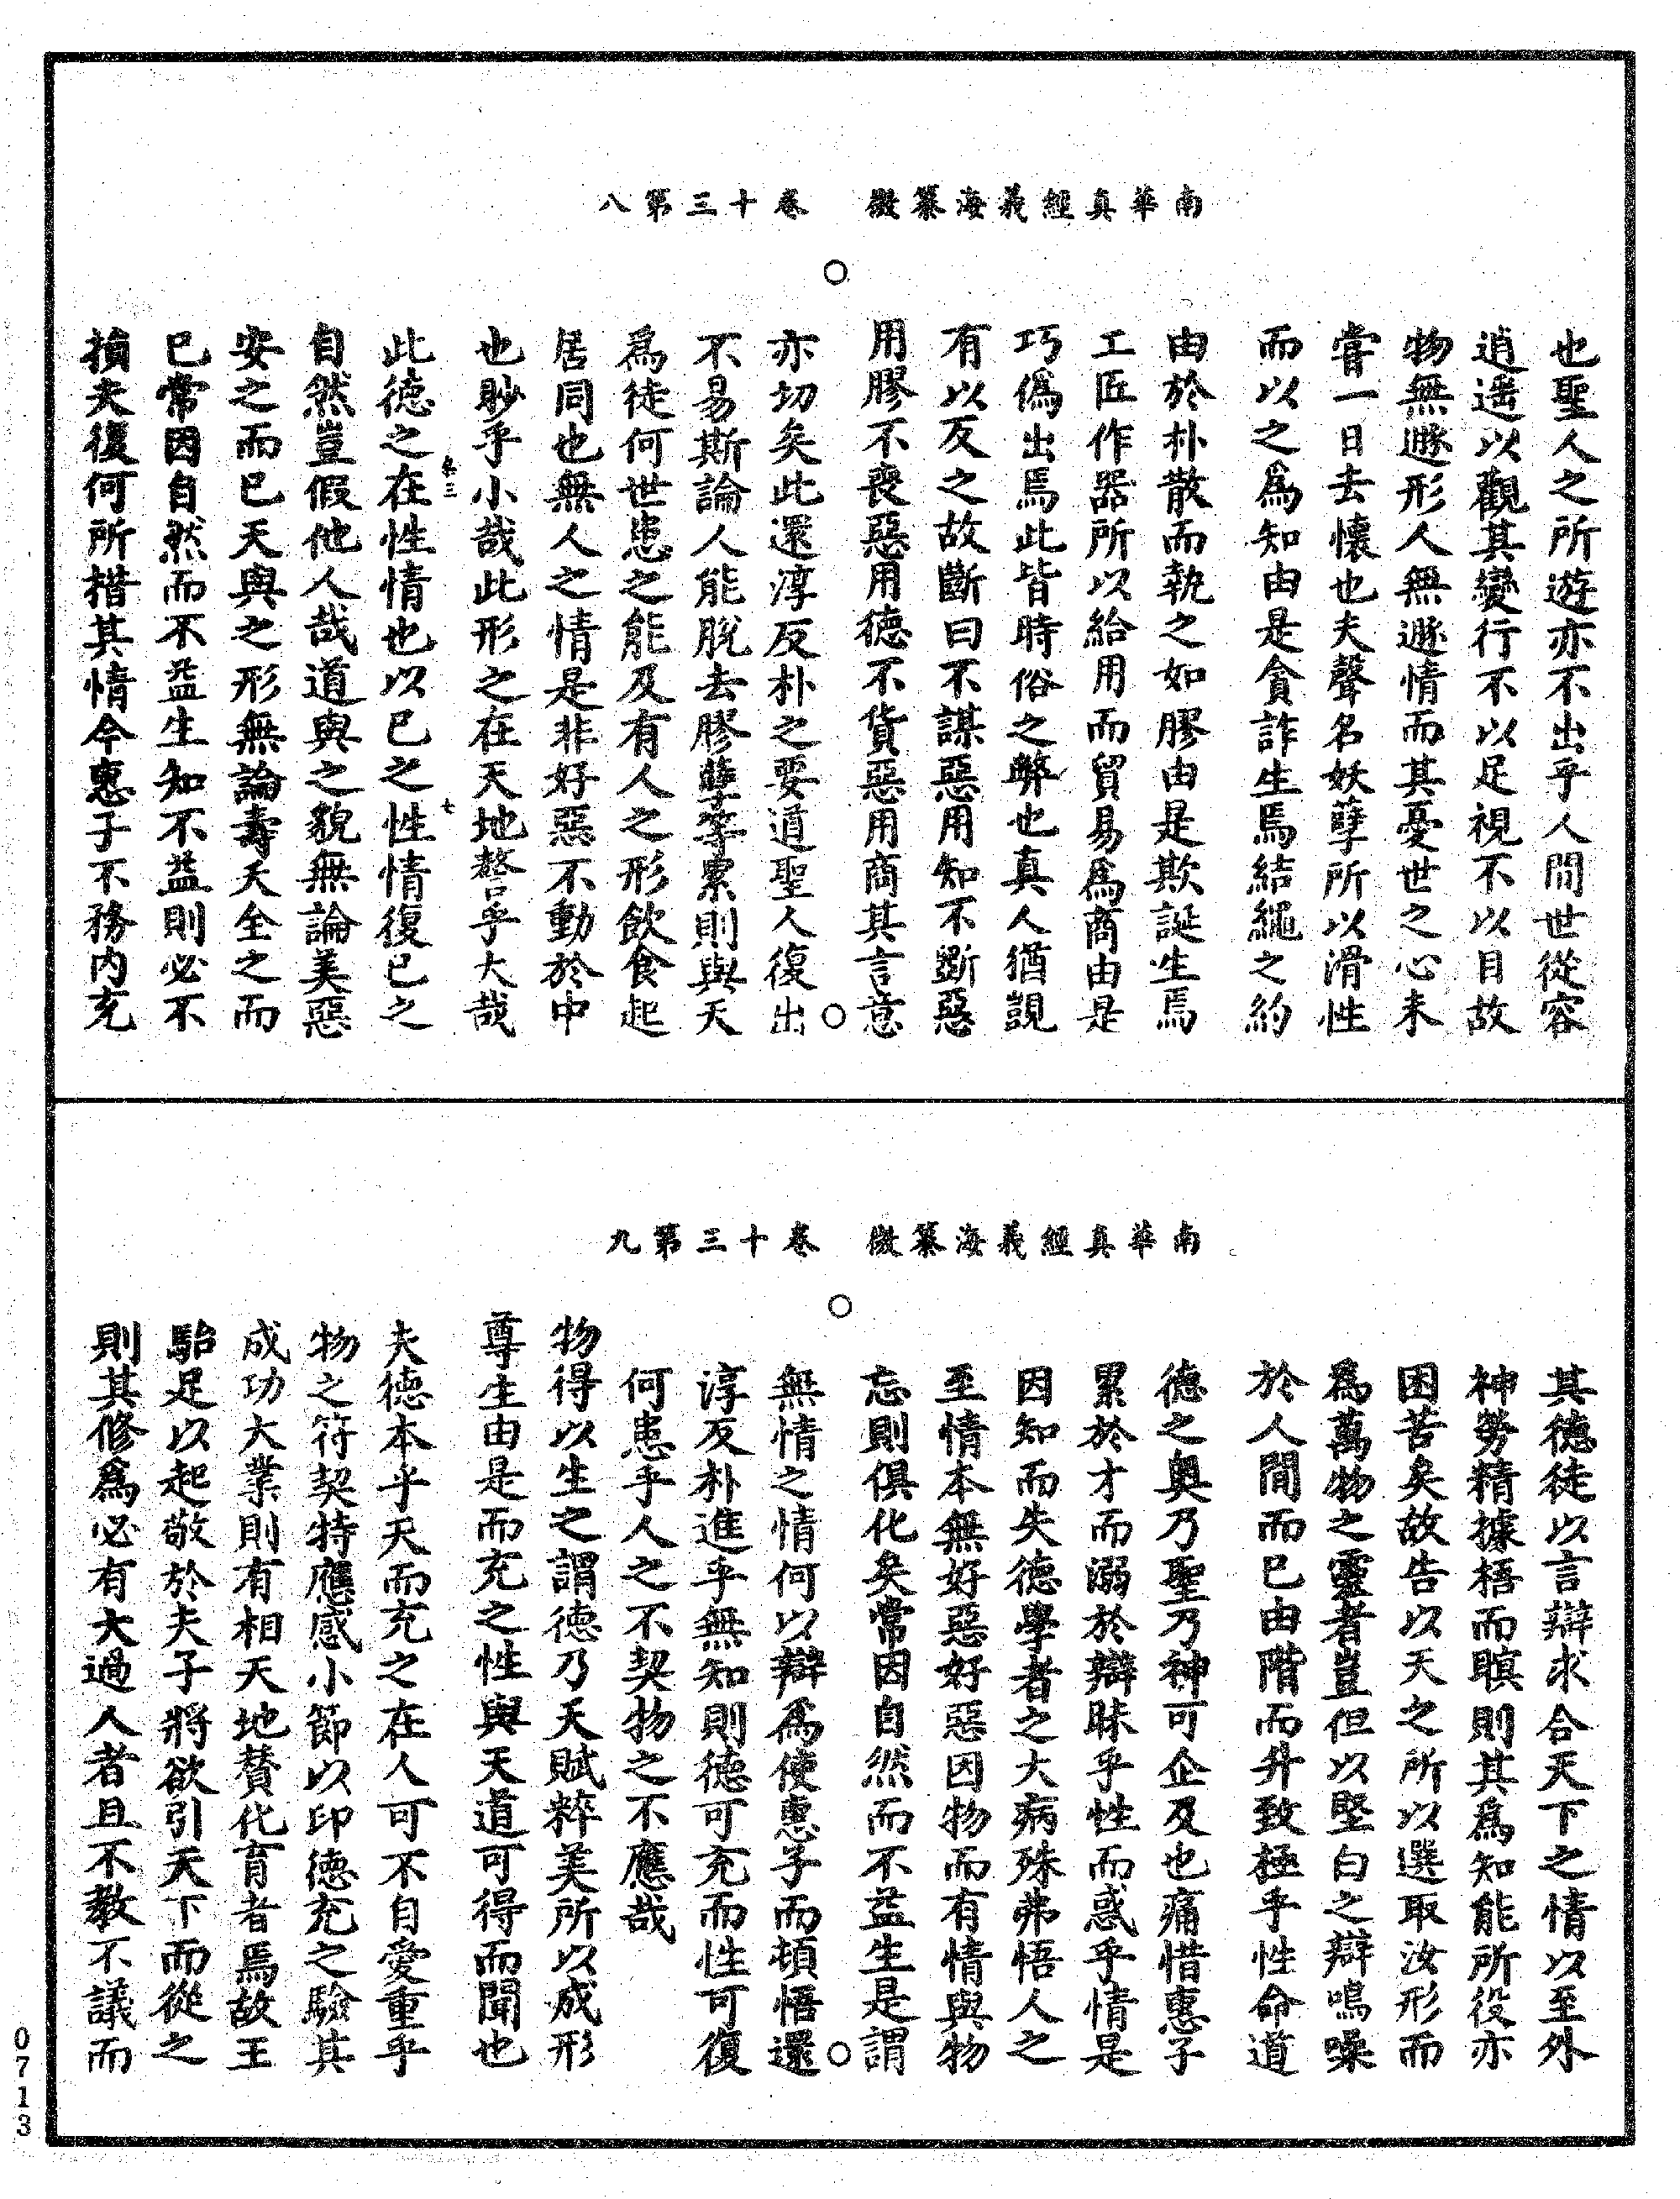 南華真經義海纂微　卷十三第八
也聖人之所遊亦不出乎人間世從容
逍遥以觀其變行不以足視不以目故
物無遯形人無遯情而其憂世之心未
嘗一日去懷也夫聲名妖孽所以滑性
而以之為知由是貪詐生焉結繩之約
由於朴散而執之如膠由是欺誕生焉
工匠作器所以給用而貿易為商由是
巧偽出焉此皆時俗之弊也真人猶覬
有以反之故斷曰不謀惡用知不斲惡
用膠不喪惡用德不貨惡用商其言意
亦切矣此還淳反朴之要道聖人復出
不易斯論人能脫去膠孽等累則與天
為徒何世患之能及有人之形飲食起
居同也無人之情是非好惡不動於中
也眇乎小哉此形之在天地謷乎大哉
此德之在性情也以已之性情復已之
弅三
七
自然豈假他人哉道與之貌無論美惡
安之而已天與之形無論壽夭全之而
已常因自然而不益生知不益則必不
損夫復何所措其情今惠子不務内充
南華真經義海纂微　卷十三第九
其德徒以言辯求合天下之情以至外
神勞精據梧而瞑則其為知能所役亦
困苦矣故告以天之所以選取汝形而
為萬物之靈者豈但以堅白之辯鳴噪
於人間而已由階而升致極乎性命道
德之奧乃聖乃神可企及也痛惜惠子
累於才而溺於辯昧乎性而惑乎情是
因知而失德學者之大病殊弗悟人之
至情本無好惡好惡因物而有情與物
忘則俱化矣常因自然而不益生是謂
無情之情何以辯為使惠子而頓悟還
淳反朴進乎無知則德可充而性可復
何患乎人之不契物之不應哉
物得以生之謂德乃天賦粹美所以成形
尊生由是而充之性與天道可得而聞也
夫德本乎天而充之在人可不自愛重乎
物之符契特應感小節以印德充之驗其
成功大業則有相天地贊化育者焉故王
駘足以起敬於夫子將欲引天下而從之
則其修為必有大過人者且不教不議而
0713